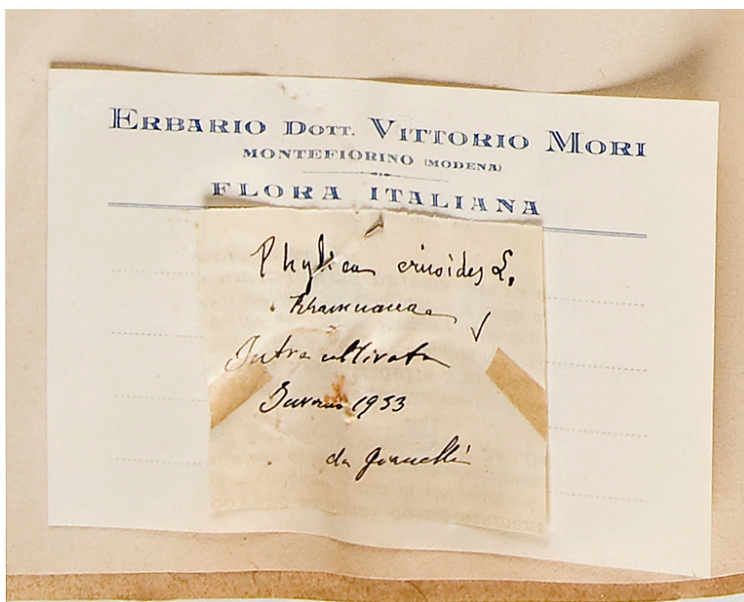 ERBARIO DOTT. VITTORIO MORI
MONTEFIORINO (MODENA)
FLORA ITALIANA
Phylica ericoides L.
Rhamnacea
Intra cultivata
1933
da Giannelli